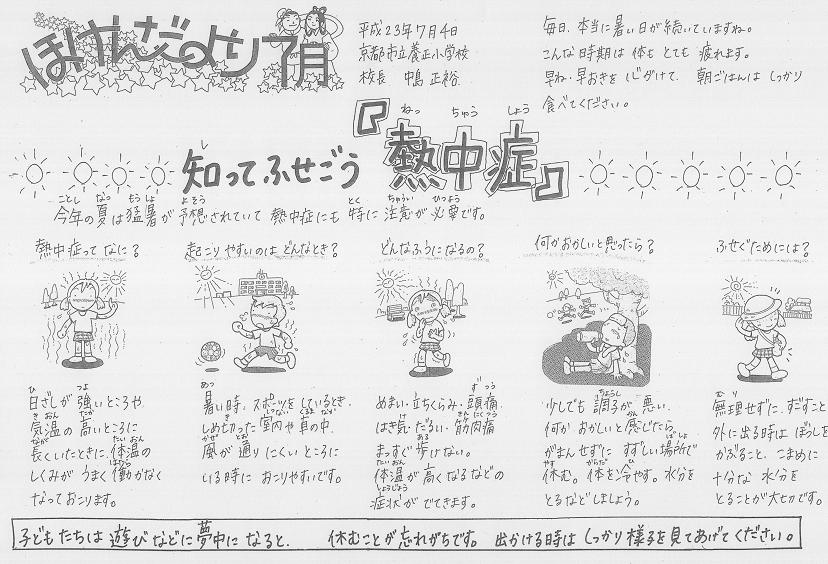 ほけんだより 7月
平成23年7月4日
京都市立養正小学校
校長 中島 正裕
毎日、本当に暑い日が続いていますね。
こんな時期は体もとても疲れます。
早ね・早おきを心がけて、朝ごはんはしっかり
食べてください。
知ってふせごう『熱中症』
今年の夏は猛暑が予想されていて熱中症にも特に注意が必要です。
熱中症ってなに?
日ざしが強いところや
気温の高いところに
長くいたときに、体温の
しくみがうまく働かなく
なっておこります。
起こりやすいのはどんなとき?
暑い時、スポーツをしているとき、
しめ切った室内や車の中、
風が通りにくいところに
いる時におこりやすいです。
どんなふうになるの?
めまい・立ちくらみ・頭痛
はき気・だるい・筋肉痛
まっすぐ歩けない。
体温が高くなるなどの
症状がでてきます。
何かおかしいと思ったら?
少しでも調子が悪い、
何かおかしいと感じたら、
がまんせずにすずしい場所で
休む。体を冷やす。水分を
とるなどしましょう。
ふせぐためには?
無理せずに、すごすこと
外に出る時はぼうしを
かぶること、こまめに
十分な水分を
とることが大切です。
子どもたちは遊びなどに夢中になると、 休むことが忘れがちです。 出かける時はしっかり様子を見てあげてください。